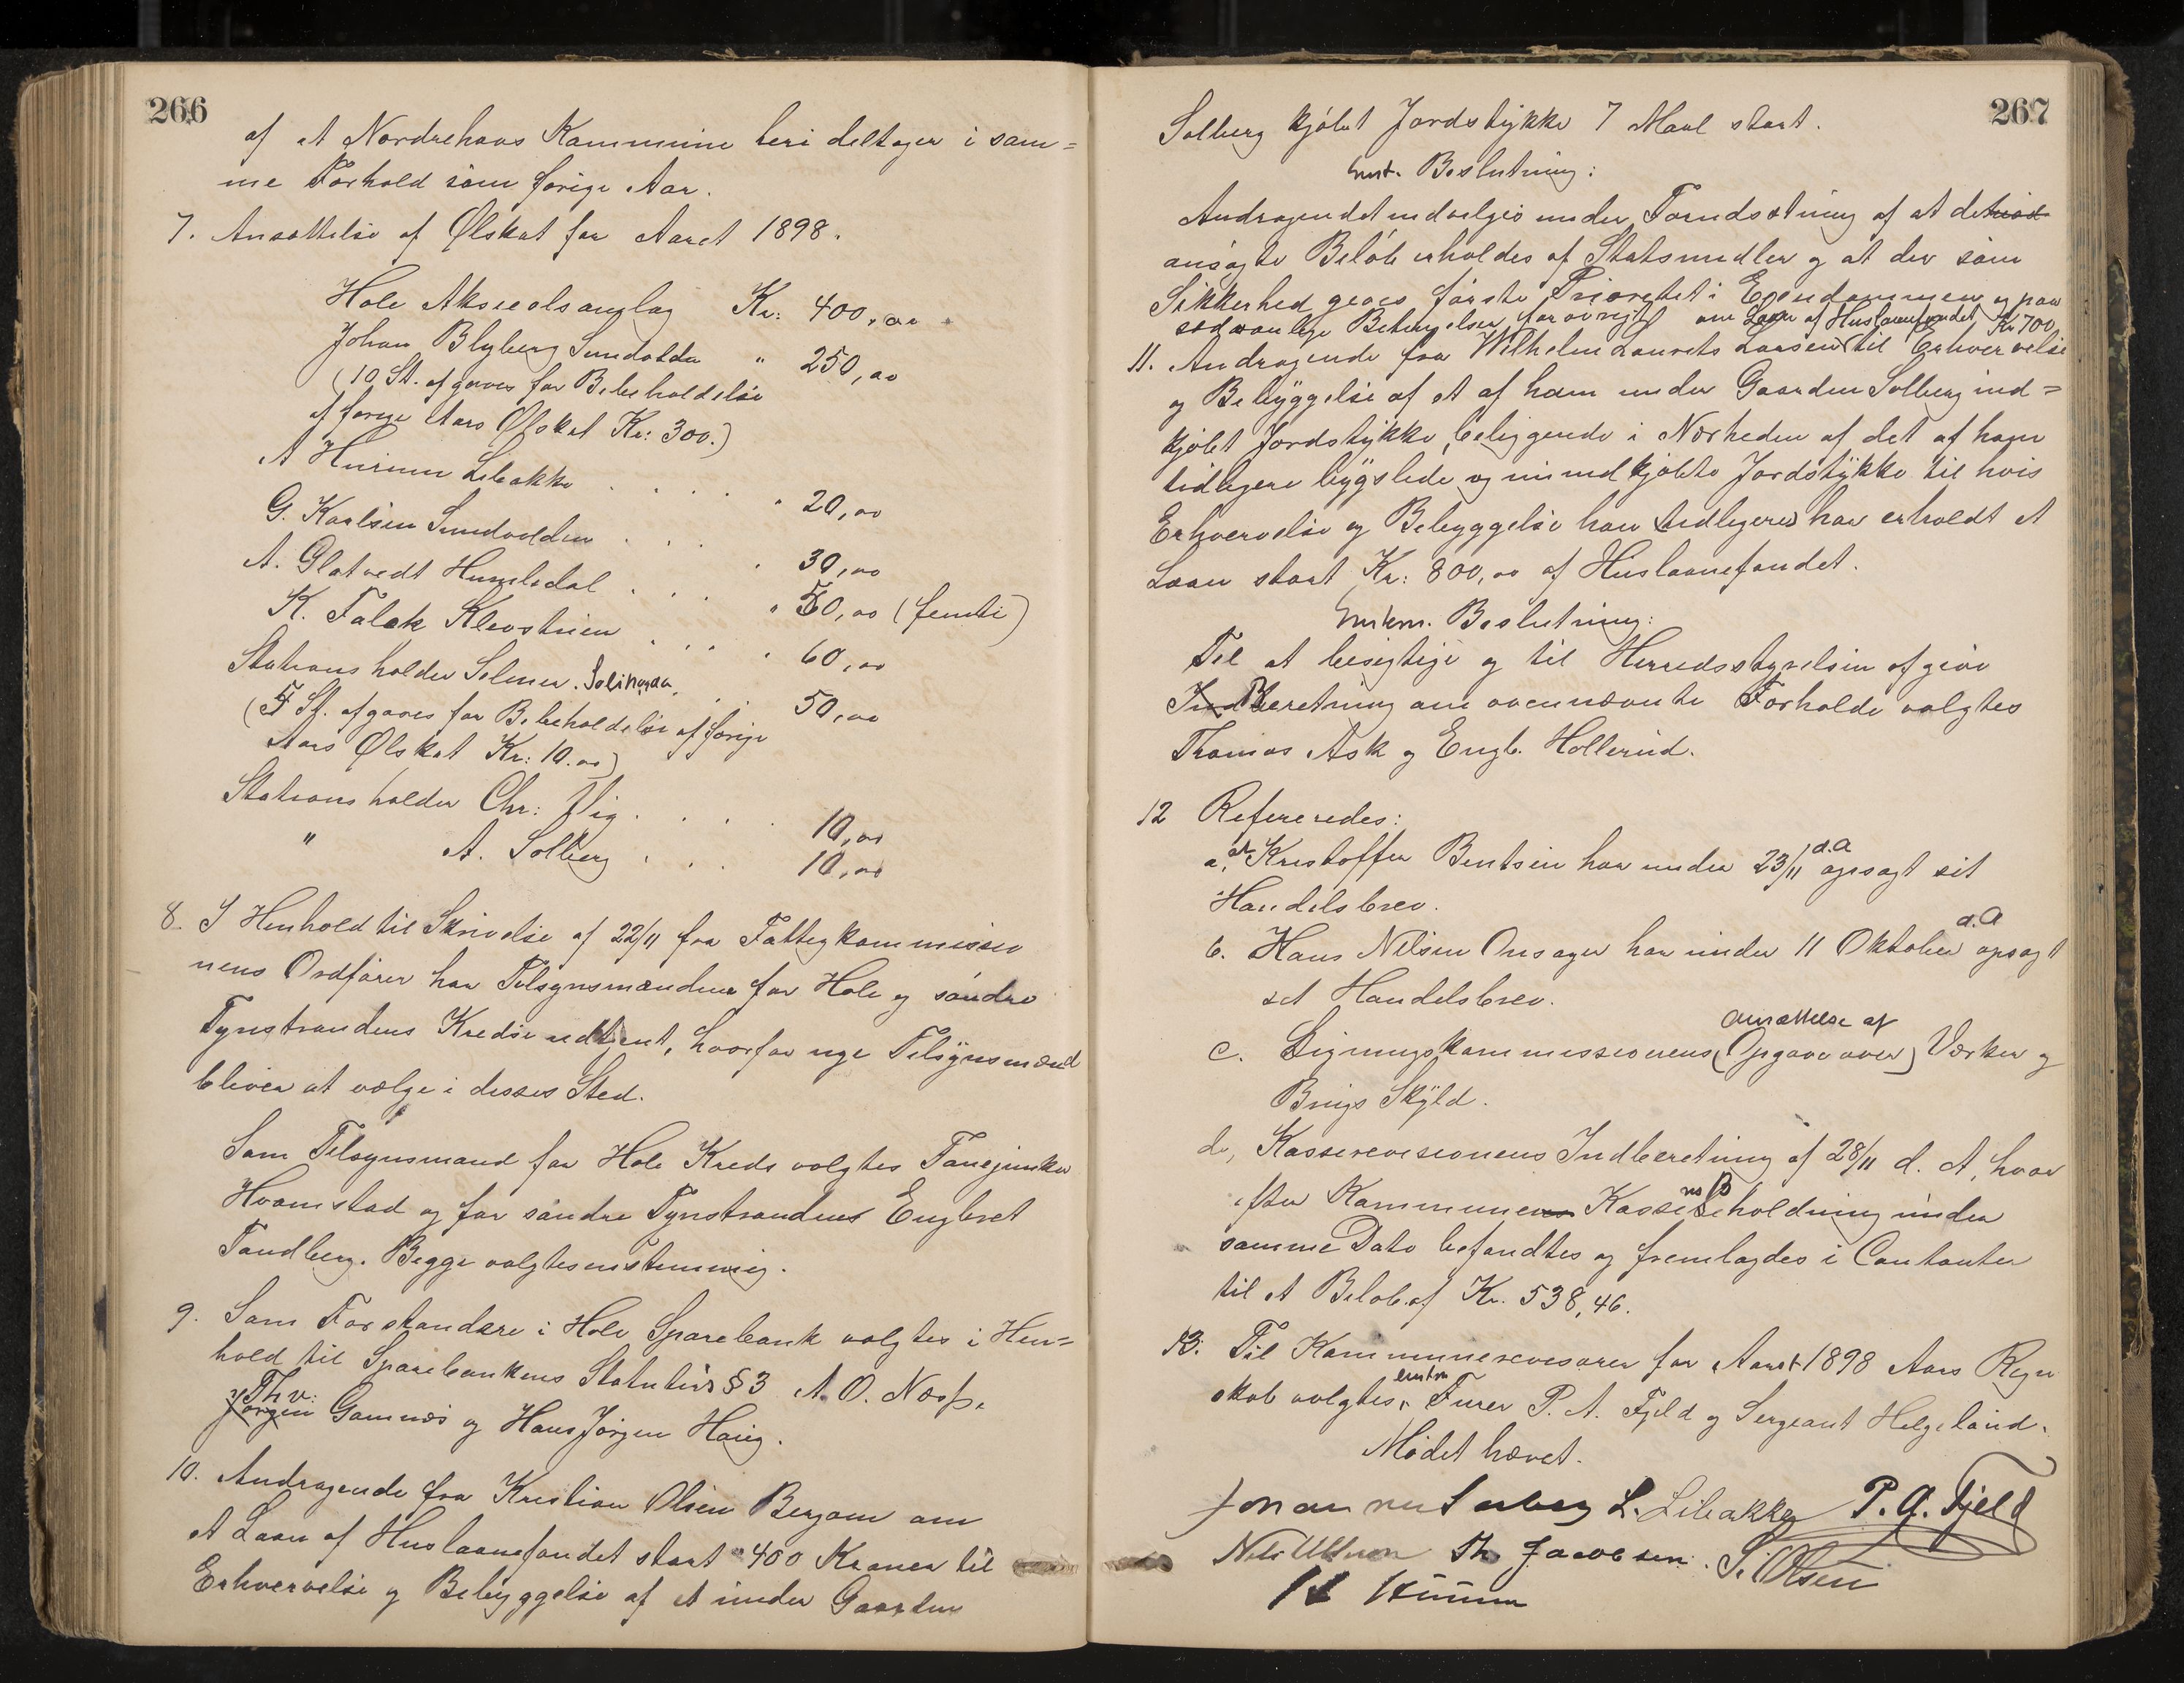 266
af at Nordrehovs Kommune heri deltager i sam=
me Forhold som forige Aar.
7. Ansættelse af Ølskat for Aaret 1898.
Hole Akseeølsamlag Kr: 400,00
Johan Blyberg Sundvolden " 250,00
(10 St. afgaves for Bibeholdelse
af forige Aars Ølskat Kr: 300.)
A Hurum Libakke . . . . " 20,00
G. Karlsen Sundvolden . . . " 30,00
A. Glatvedt Humledal . . . " 50,00 (femti)
K. Falck Klevstuen . . . " 60,00
Stationsholder Selmer. Solihøgda, . . 50,00
(5 St. afgaves for Bibeholdelse af forige
Aars Ølskat Kr: 10.00)
Stationsholder Chr: Vig . . . . 10,00
" A. Solberg . . . 10,00
8. I Henhold til Skrivelse af 22/11 fra Fattigkommissio
nens Ordfører har Tilsynsmændene for Hole og søndre
Tyristrandens Kredse udtjent, hvorfor nye Tilsynsmænd
bliver at vælge i disses Sted.
Som Tilsynsmand for Hole Kreds valgtes Fanejunker
Hvamstad og for søndre Tyristrandens Engbret
Tandberg. Begge valgtes enstemmig.
9. Som Forstandere i Hole Sparebank valgtes i Hen=
hold til Sparebankens Statuters § 3 A. O. Næss,
Th v:
Jørgen Gamnæs og Hans Jørgen Haug.
10. Andragende fra Kristian Olsen Bergom om
et Laan af Huslaanefondet stort 400 Kroner til
Erhvervelse og Bebyggelse af et under Gaarden
267
Solberg kjøbt Jordstykke 7 Maal stort.
Enst. Beslutning:
Andragendet indvilges under Forudsætning af at det
ansøgte Beløb erholdes af Statsmidler og at der som
Sikkerhed gives første Prioritet i Eiendommen og paa
sædvanlige Betingelser forøvrigt
om Laan af Huslaanefondet Kr 700
11. Andragende fra Wilhelm Laurits Larsen til Erhvervelse
og Bebyggelse af et af ham under Gaarden Solberg ind=
kjøbt Jordstykke, beliggende i Nærheden af det af ham
tidligere bygslede og nu indkjøbte Jordstykke til hvis
Erhvervelse og Bebyggelse han (tidligere) har erholdt et
Laan stort Kr: 800,00 af Huslaanefondet.
Enstem. Beslutning:
Til at besigtige og til Herredsstyrelsen afgive
Ind Beretning om ovennævnte Forholde valgtes
Thomas Ask og Engb. Hollerud.
12 Refereredes:
a, at Kristoffer Bentsen har under 23/11 d.A opsagt sit
Handelsbrev.
b. Hans Nilsen Onsager har under 11 Oktober d.A opsagt
sit Handelsbrev.
Ansættelse af
c. Ligningskommissionens (Opgave over) Værker og
Brugs Skyld.
d, Kasserevisionens Indberetning af 28/11 d. A, hvor
efter Kommunens Kassebeholdning under
samme Dato befandtes og fremlagdes i Contanter
til et Beløb af Kr. 538,46.
13. Til Kommunerevisorer for Aaret 1898 Aars Regn
skab valgtes enstm Furer P. A. Fjeld og Sergeant Helgeland.
Mødet hævet.
L. Libakke P. A. Fjeld
Th Jacobsen. S. Olsen